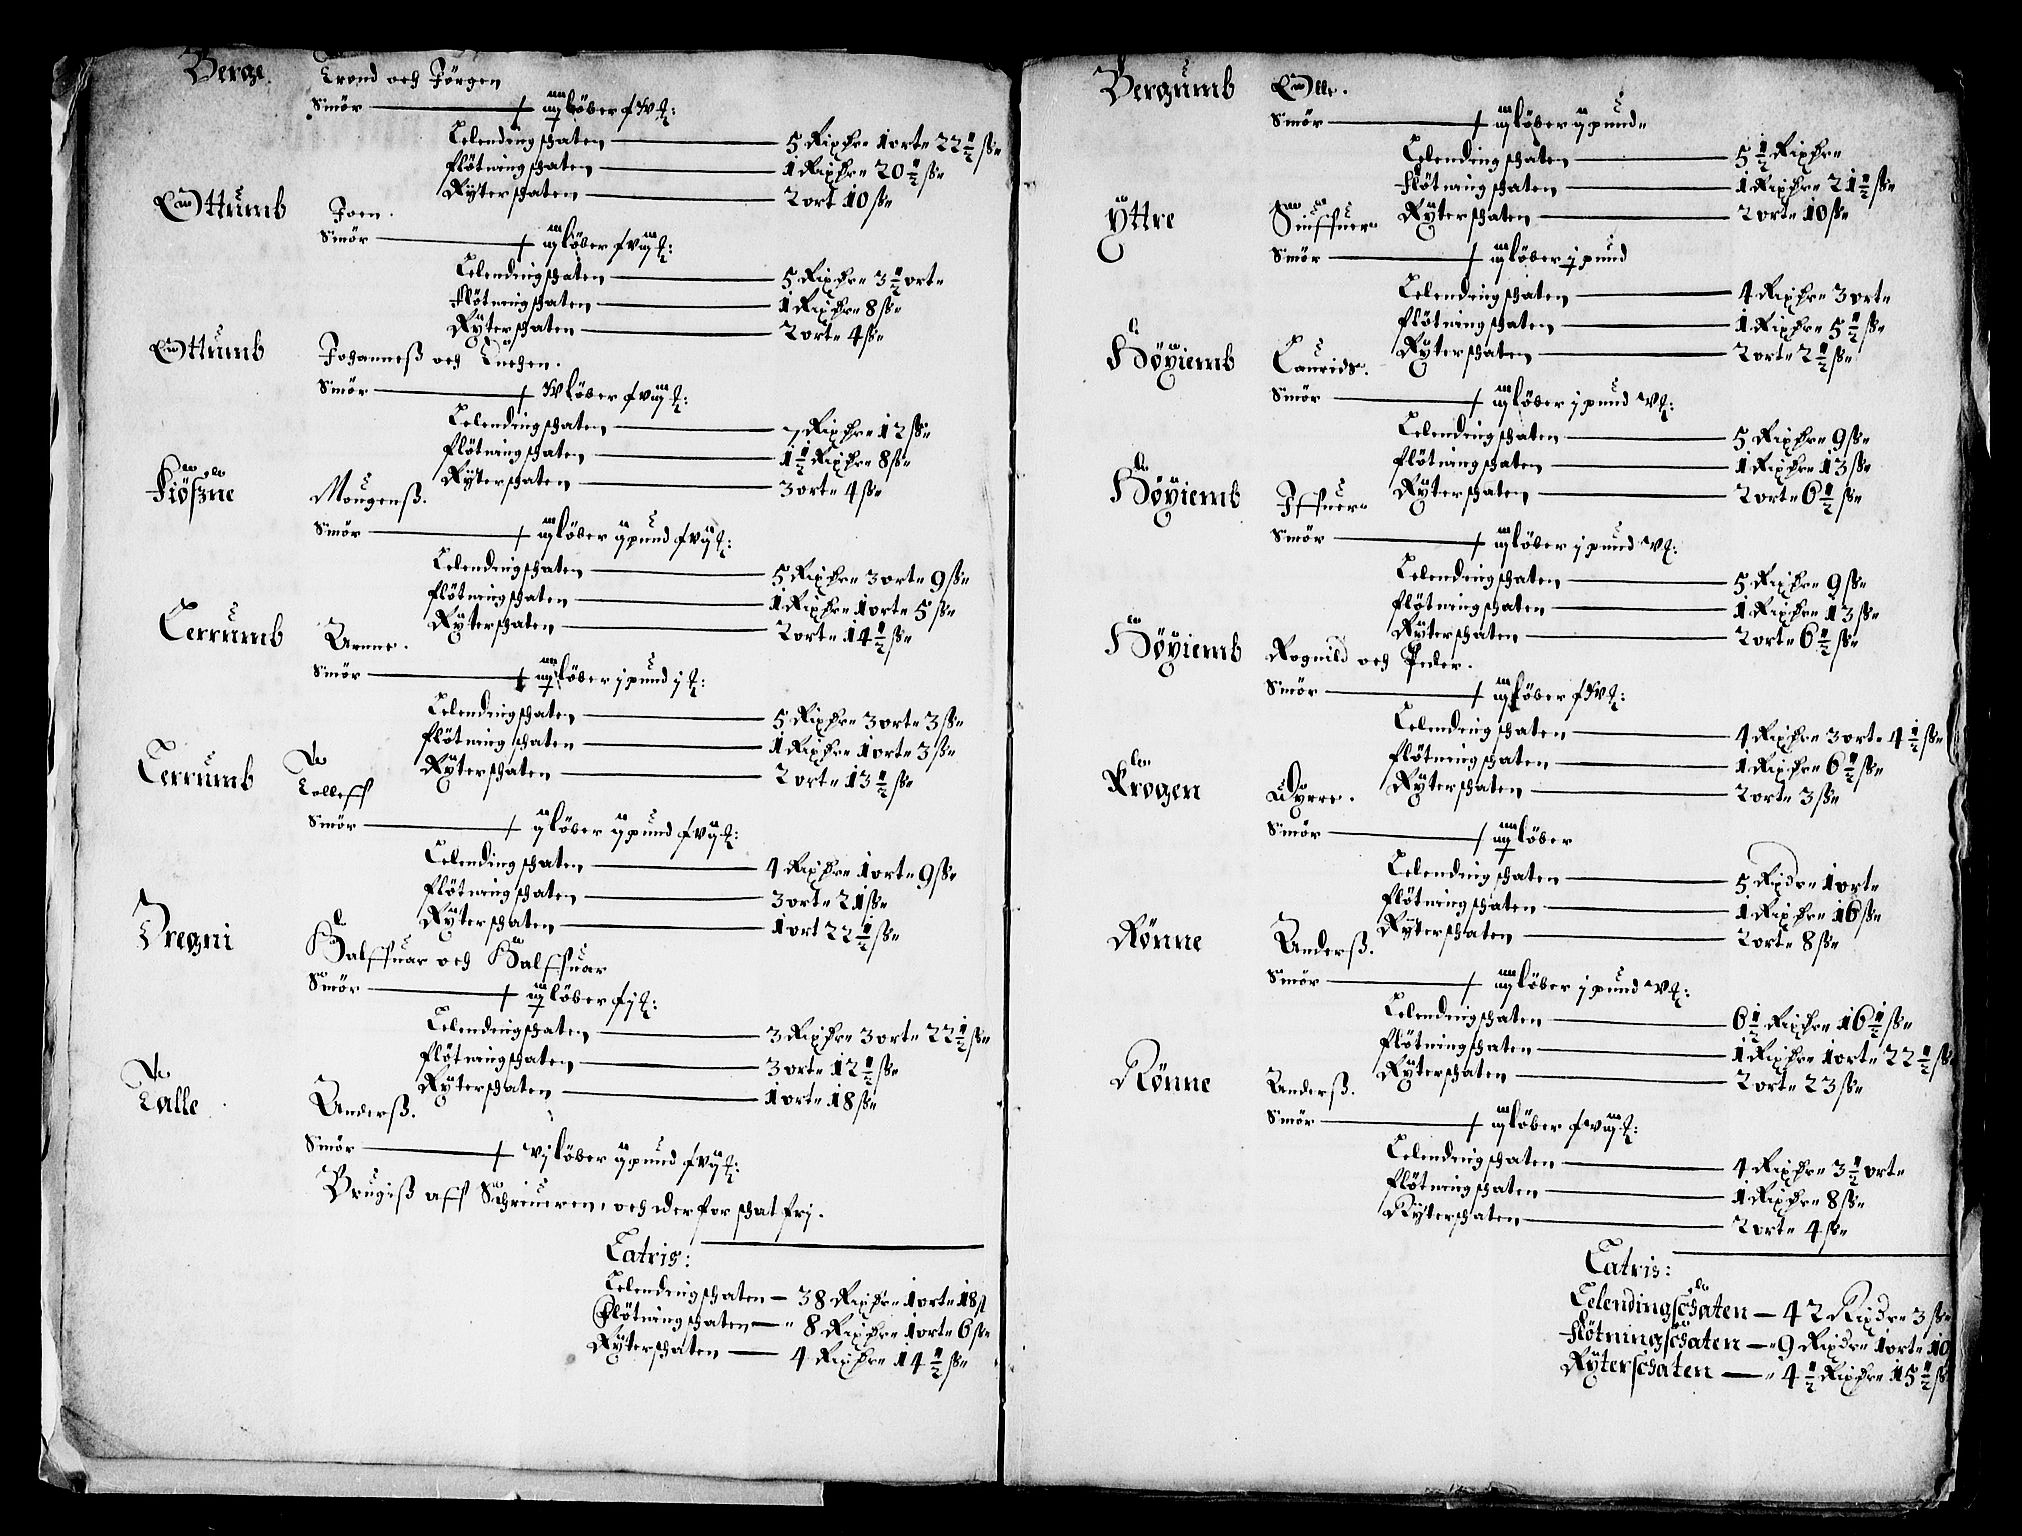 Berge. Trond och Jörgen
Smör — iiij löber
Lelendingschaten — 5 Rixdr 1 ort 22½ ß
flötningschaten — 1 Rixdr 20½ ß
Ryterschaten — 2 ort 10 ß
Ottumb Joen.
Smör — löber
Lelendingschaten — 5 Rixdr 3½ ort
flötningschaten — 1 Rixdr 8 ß
Ryterschaten — 2 ort 4 ß
Ottumb Johanneß och
Smör — löber
Lelendingschaten — 7 Rixdr 12 ß
flötningschaten — 1½ Rixdr 8 ß
Ryterschaten — 3 ort 4 ß
Fiöszne Mougenß.
Smör — löber ij pund
Lelendingschaten — 5 Rixdr 3 ort 9 ß
flötningschaten — 1 Rixdr 1 ort 5 ß
Ryterschaten — 2 ort 14½ ß
Lerrumb Arnne.
Smör — löber j pund j
Lelendingschaten — 5 Rixdr 3 ort 3 ß
flötningschaten — 1 Rixdr 1 ort 3 ß
Ryterschaten — 2 ort 13½ ß
Lerrumb Tolleff
Smör — löber ij pund
Lelendingschaten — 4 Rixdr 1 ort 9 ß
flötningschaten — 3 ort 21 ß
Ryterschaten — 1 ort 22½ ß
Vregni Halffuar och Halffuar
Smör — löber
Lelendingschaten — 3 Rixdr 3 ort 22½ ß
flötningschaten — 3 ort 12½ ß
Ryterschaten — 1 ort 18 ß
Talle Anderß.
Smör — vj löber ij pund
Brugiß aff Schriueren, och derfor schat fri.
Latris:
Lelendingschaten — 38 Rixdr 1 ort 18 ß
flötningschaten — 8 Rixdr 1 ort 6 ß
Ryterschaten — 4 Rixdr 14½ ß
Bergumb Olle.
Smör — löber ij pund
Lelendingschaten — 5½ Rixdr
flötningschaten — 1 Rixdr 21½ ß
Ryterschaten — 2 ort 10 ß
Yttre
Smör — löber j pund
Lelendingschaten — 4 Rixdr 3 ort
flötningschaten — 1 Rixdr 5½ ß
Ryterschaten — 2 ort 2½ ß
Höyiemb Laurids.
Smör — löber j pund
Lelendingschaten — 5 Rixdr 9 ß
flötningschaten — 1 Rixdr 13 ß
Ryterschaten — 2 ort 6½ ß
Höyiemb Iffuer
Smör — löber j pund
Lelendingschaten — 5 Rixdr 9 ß
flötningschaten — 1 Rixdr 13 ß
Ryterschaten — 2 ort 6½ ß
Höyiemb Rognild och Peder.
Smör — löber
Lelendingschaten — 4 Rixdr 3 ort 4½ ß
flötningschaten — 1 Rixdr 6½ ß
Ryterschaten — 2 ort 3 ß
Krogen Dyrre.
Smör — iiij löber
Lelendingschaten — 5 Rixdr 1 ort
flötningschaten — 1 Rixdr 16 ß
Ryterschaten — 2 ort 8 ß
Rönne Anderß.
Smör — löber j pund
Lelendingschaten — 6½ Rixdr 16½ ß
flötningschaten — 1 Rixdr 1 ort 22½ ß
Ryterschaten — 2 ort 23 ß
Rönne Anderß.
Smör — löber
Lelendingschaten — 4 Rixdr 3½ ort
flötningschaten — 1 Rixdr 8 ß
Ryterschaten — 2 ort 4 ß
Latris:
Lelendingschaten — 42 Rixdr 3 ß
flötningschaten — 9 Rixdr 1 ort 10
Ryterschaten — 4½ Rixdr 15½ ß